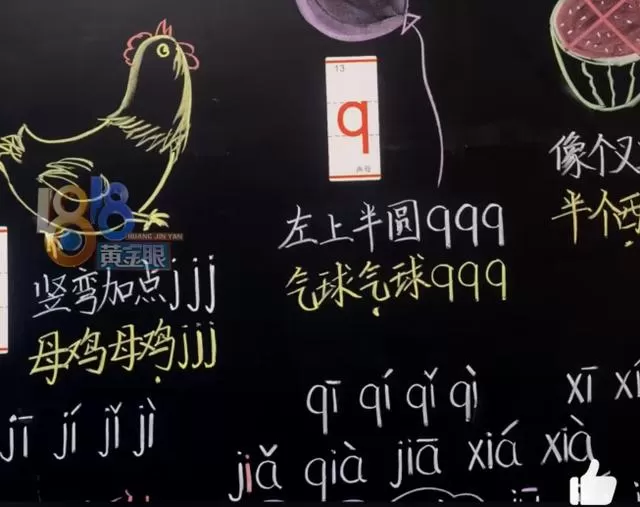 13
q
声母
1818
HUANG JIN YAN
黄金眼
左上半圆qqq
气球气球qqq
像个叉
半个西
竖弯加点jjj
母鸡母鸡jjj
jī jí jǐ jì
qī qí qǐ qì
xī xí
jiǎ qià jiā xiá xià